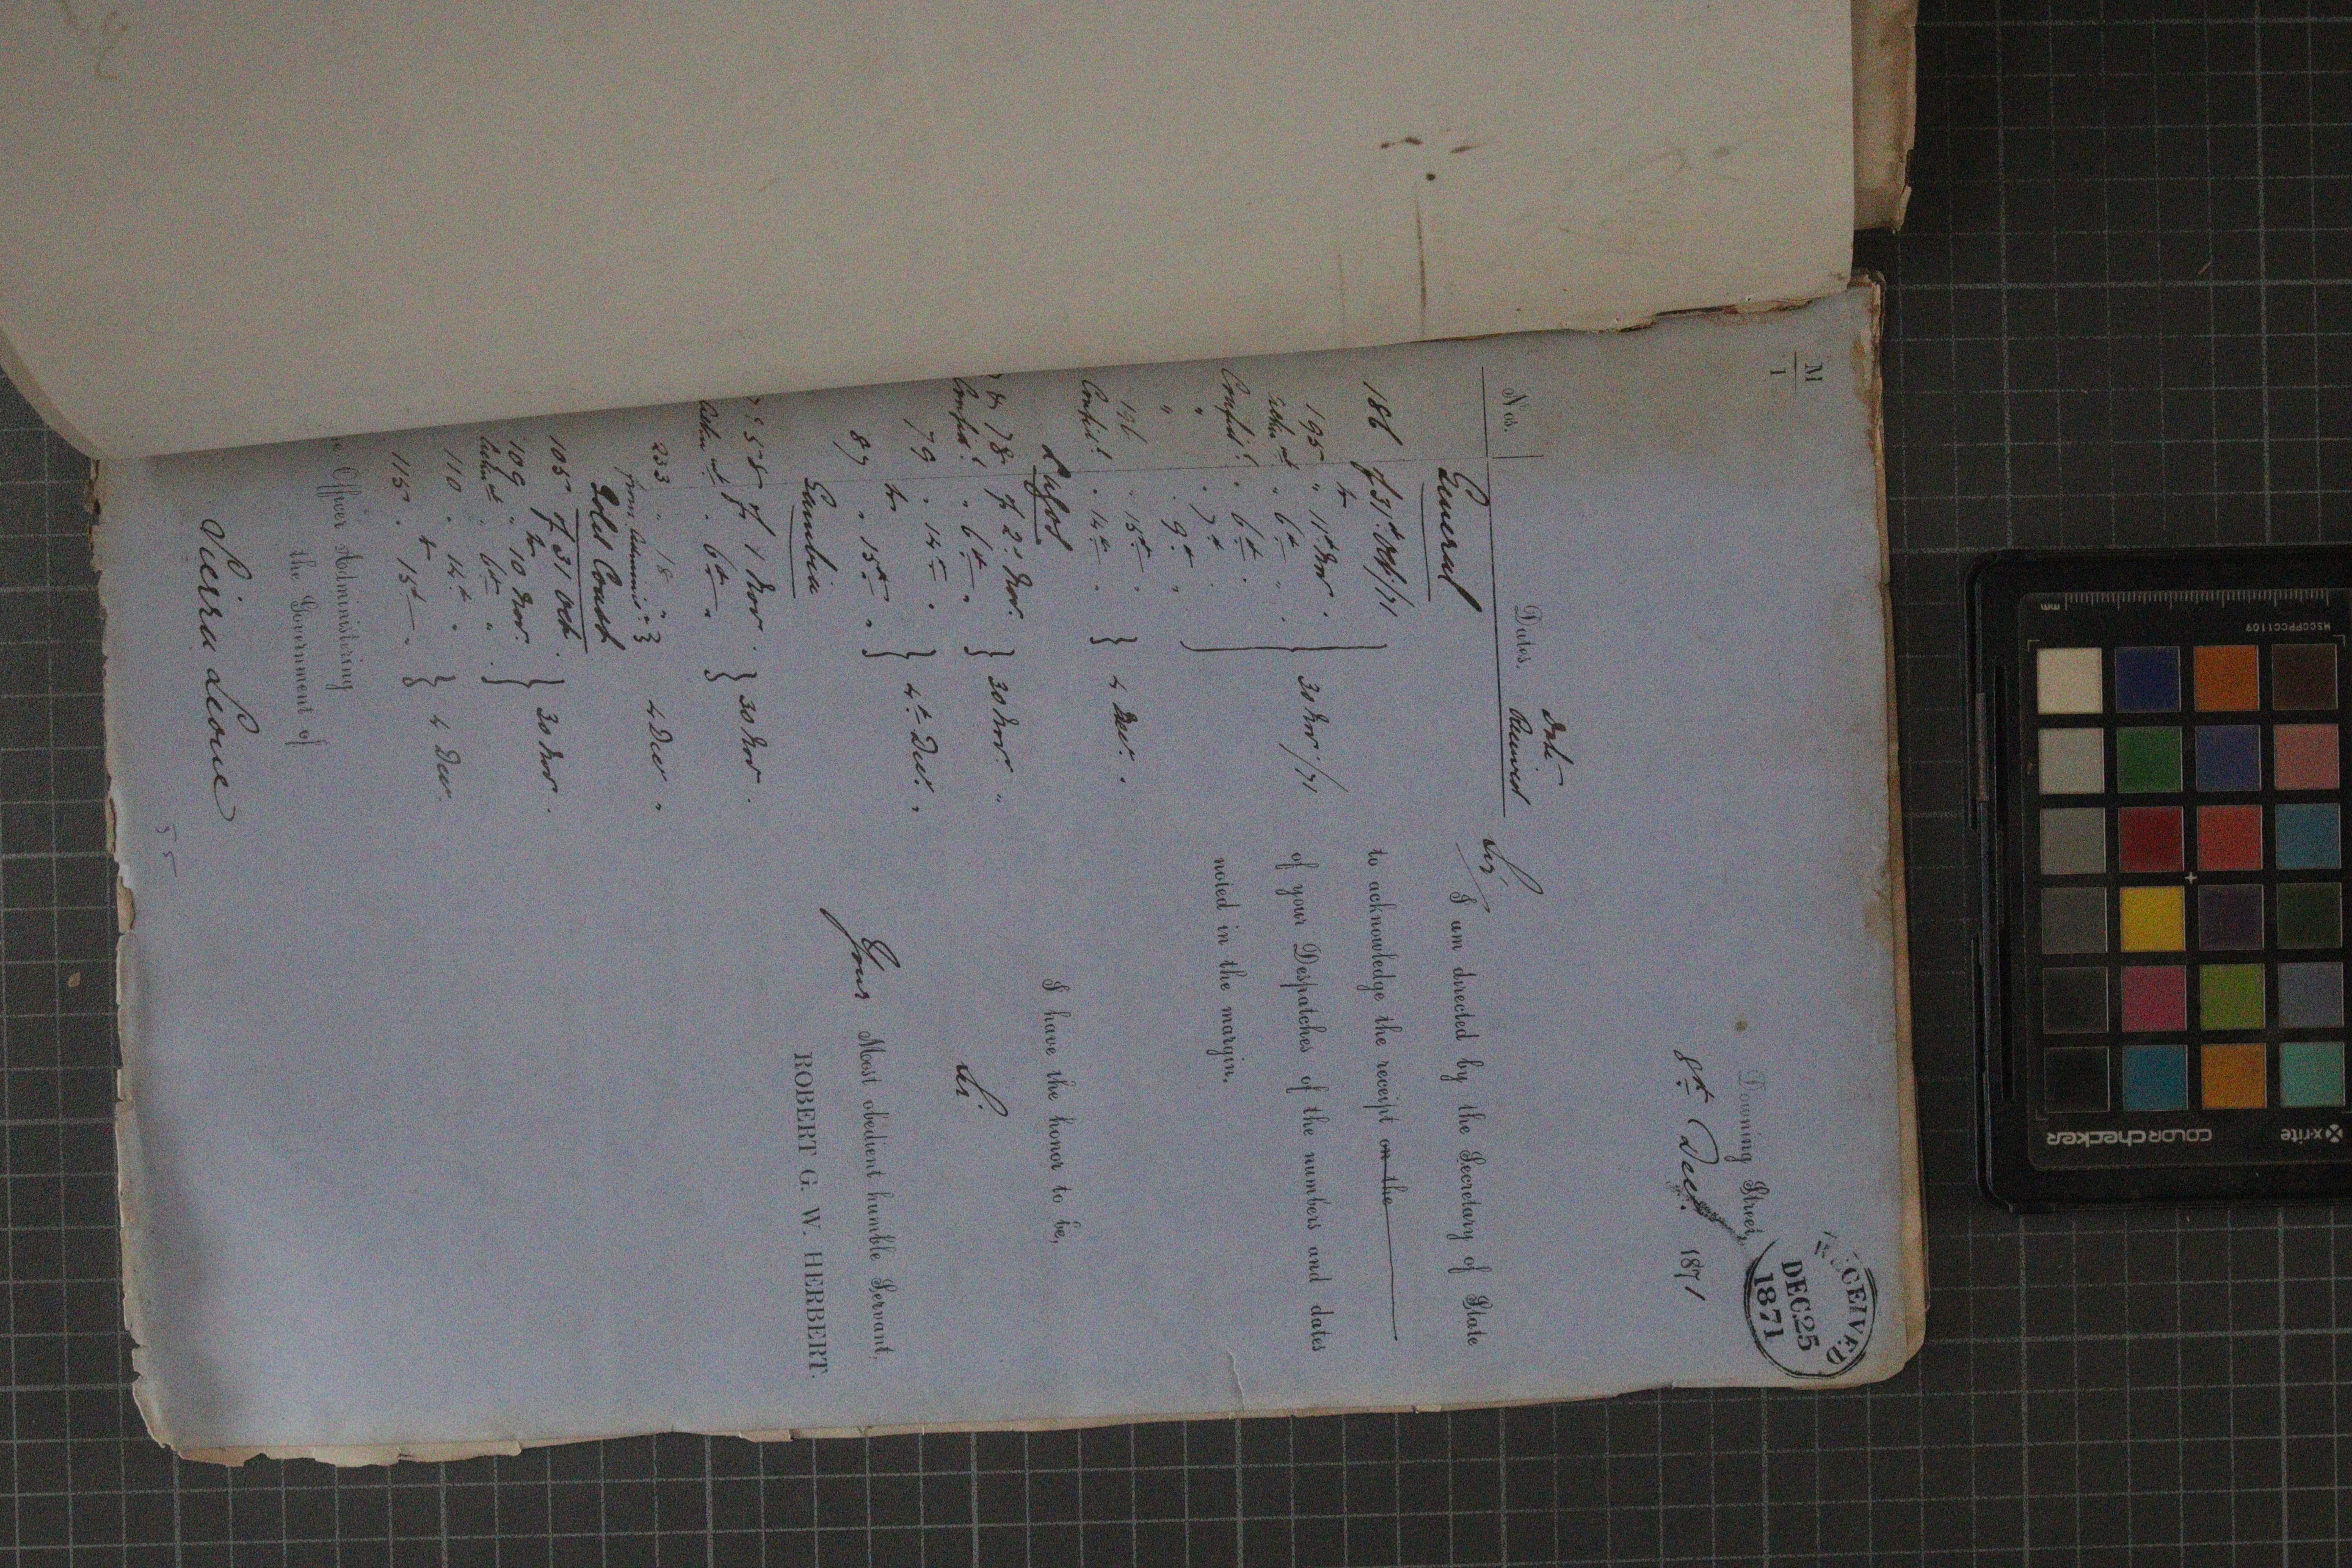 M
1
Downing Street,
RECEIVED
DEC 25
1871
8th Decr. 1871
Date
Nos. Dates. Received
Sir,
I am directed by the Secretary of State
to acknowledge the receipt on the
of your Despatches of the numbers and dates
noted in the margin.
I have the honor to be,
Sir
Your Most obedient humble Servant,
ROBERT G. W. HERBERT.
General
186 of 31st Oct/71
to
195 " 11th Nov.
" 6th " 30 Nov/71
Confid. " 6th "
" " 7th "
" " 9th "
196 " 15th "
Confid. " 14th " 4 Dec. "
Lagos
& 78 of 2d Nov.
Confid. " 6th " 30 Nov. "
79 " 14th "
to 4th Dec. "
87 " 15th "
Gambia
58 of 1 Nov.
" 6th " 30 Nov.
233 " 18 "
from 4 Dec "
Gold Coast
105 of 31 Oct.
to
109 " 10 Nov. 30 Nov.
" 6th "
110 " 14th "
to 4 Dec.
115 " 15th "
Officer Administering
the Government of
Sierra Leone
55
mm
MSCCPPCC1109
x-rite
colorchecker